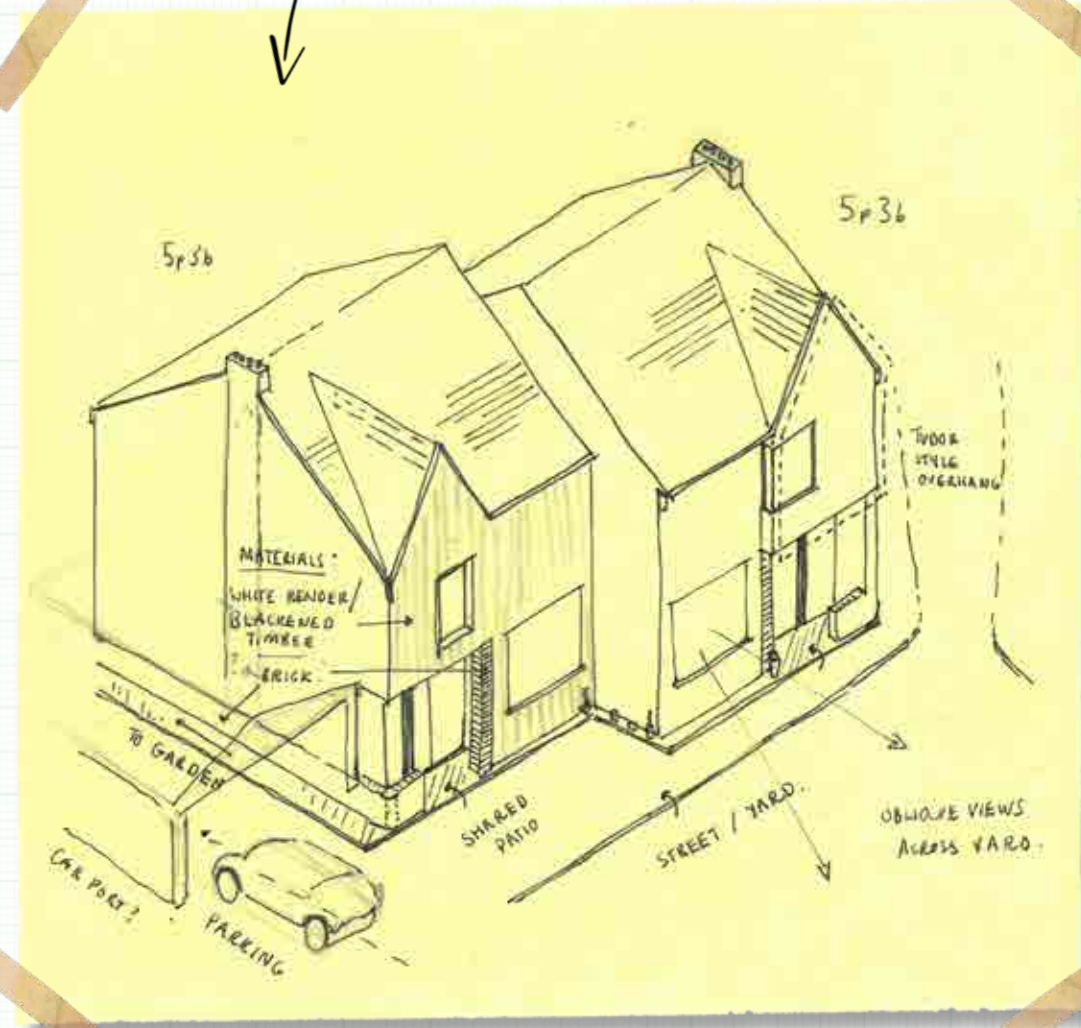 5p3b
5p3b
TUDOR
STYLE
OVERHANG
MATERIALS:
WHITE RENDER/
BLACKENED
TIMBER
BRICK
TO GARDEN
SHARED
PATIO
STREET / YARD.
OBLIQUE VIEWS
ACROSS YARD.
CAR PORT?
PARKING